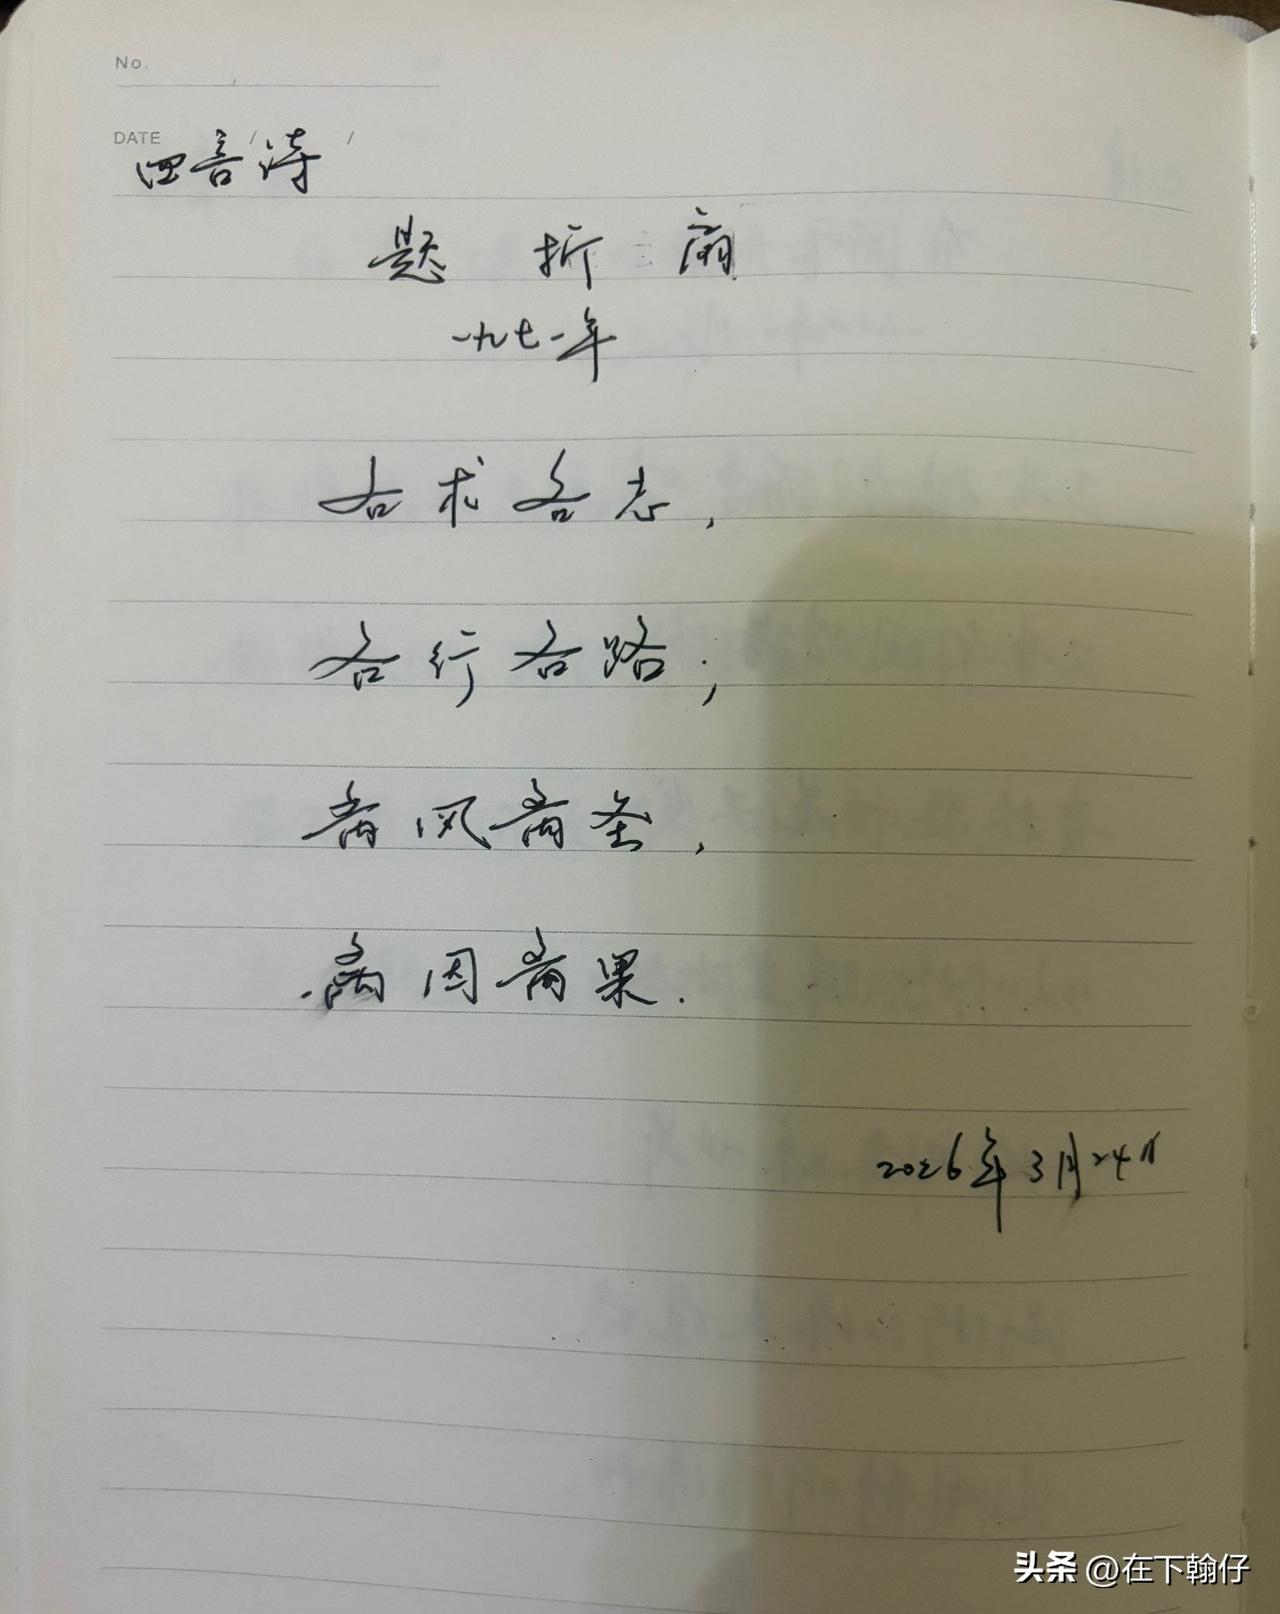 No.
DATE / /
四言诗
题折扇
一九七一年
各求各志，
各行各路；
离风离圣，
离因离果.
2026年3月24日
头条 @在下翰仔